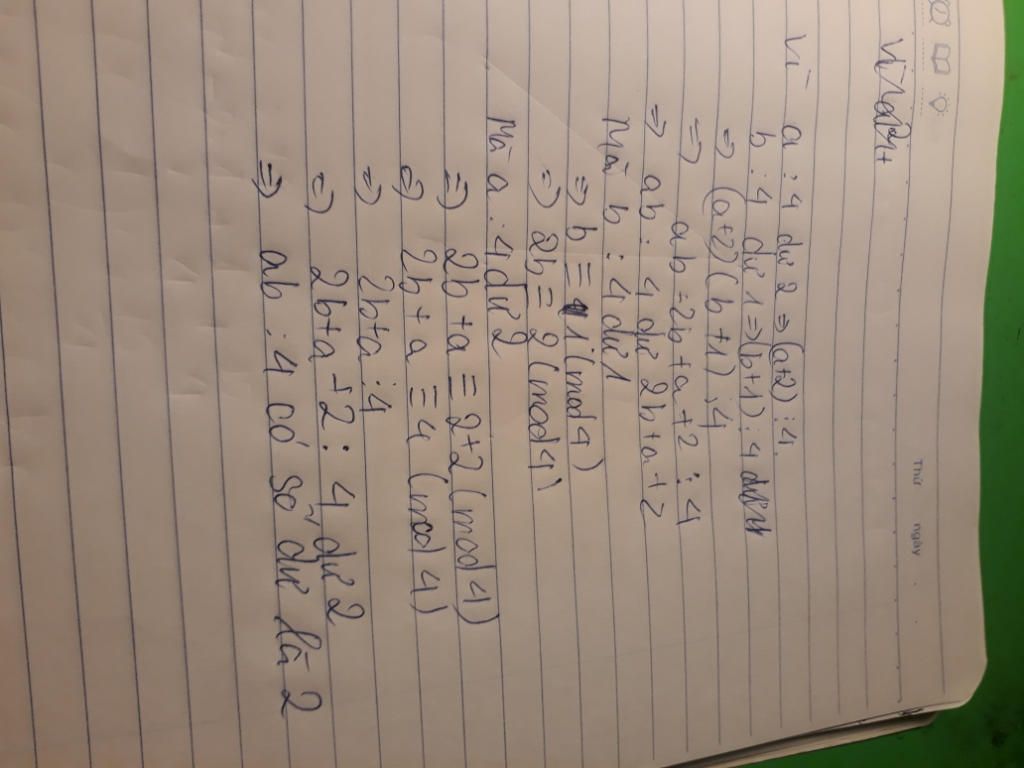 Thứ ngày
Vì a : 4 dư 2 ⇒ (a+2) ⋮ 4.
b : 4 dư 1 ⇒ (b+1) : 4 dư
⇒ (a+2)(b+1) ⋮ 4
⇒ ab = 2b + a + 2 ⋮ 4
⇒ ab : 4 dư 2b + a + 2
Mà b : 4 dư 1
⇒ b ≡ 1 (mod 4)
⇒ 2b ≡ 2 (mod 4)
Mà a : 4 dư 2
⇒ 2b + a ≡ 2+2 (mod 4)
⇒ 2b + a ≡ 4 (mod 4)
⇒ 2b+a ⋮ 4
⇒ 2b+a + 2 : 4 dư 2
⇒ ab : 4 có số dư là 2